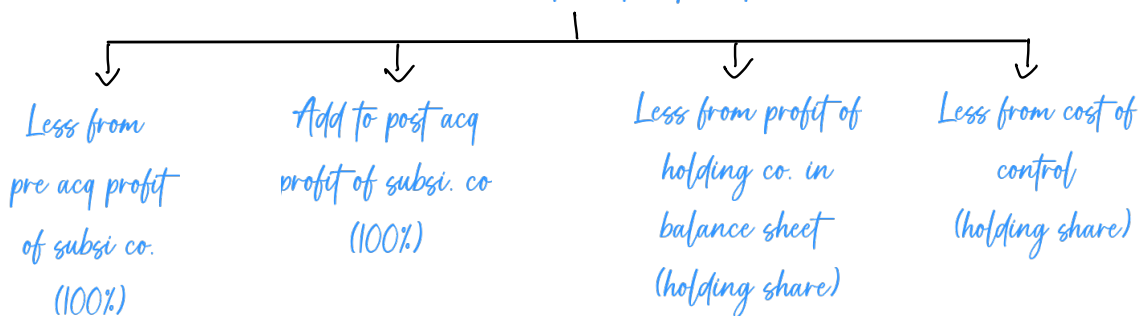 Less from
pre acq profit
of subsi co.
(100%)
Add to post acq
profit of subsi. co
(100%)
Less from profit of
holding co. in
balance sheet
(holding share)
Less from cost of
control
(holding share)